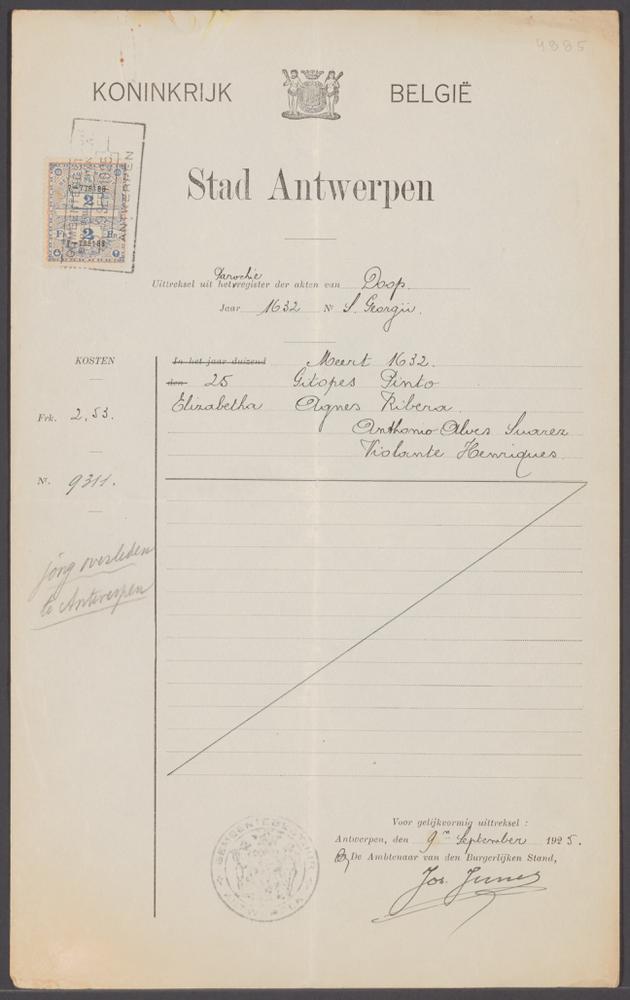 4885
KONINKRIJK BELGIË
Stad Antwerpen
ANTWERPEN
2
2
Parochie
Uittreksel uit het register der akten van Doop.
Jaar 1632 N^r S. Georgii.
KOSTEN
In het jaar duizend Meert 1632.
den 25 Gilopes Pinto
Elizabetha Agnes Ribera.
Frk. 2,53.
Anthonio Alves Suarez
Violante Henriques.
N^r. 9311.
jong overleden
te Antwerpen
Voor gelijkvormig uittreksel :
Antwerpen, den 9^n September 1925.
De Ambtenaar van den Burgerlijken Stand,